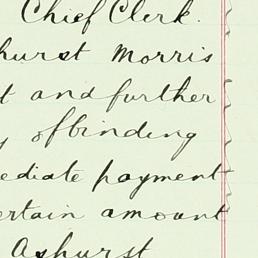 Chief Clerk.
hurst Morris
t and further
y of binding
ediate payment
ertain amount
Ashurst